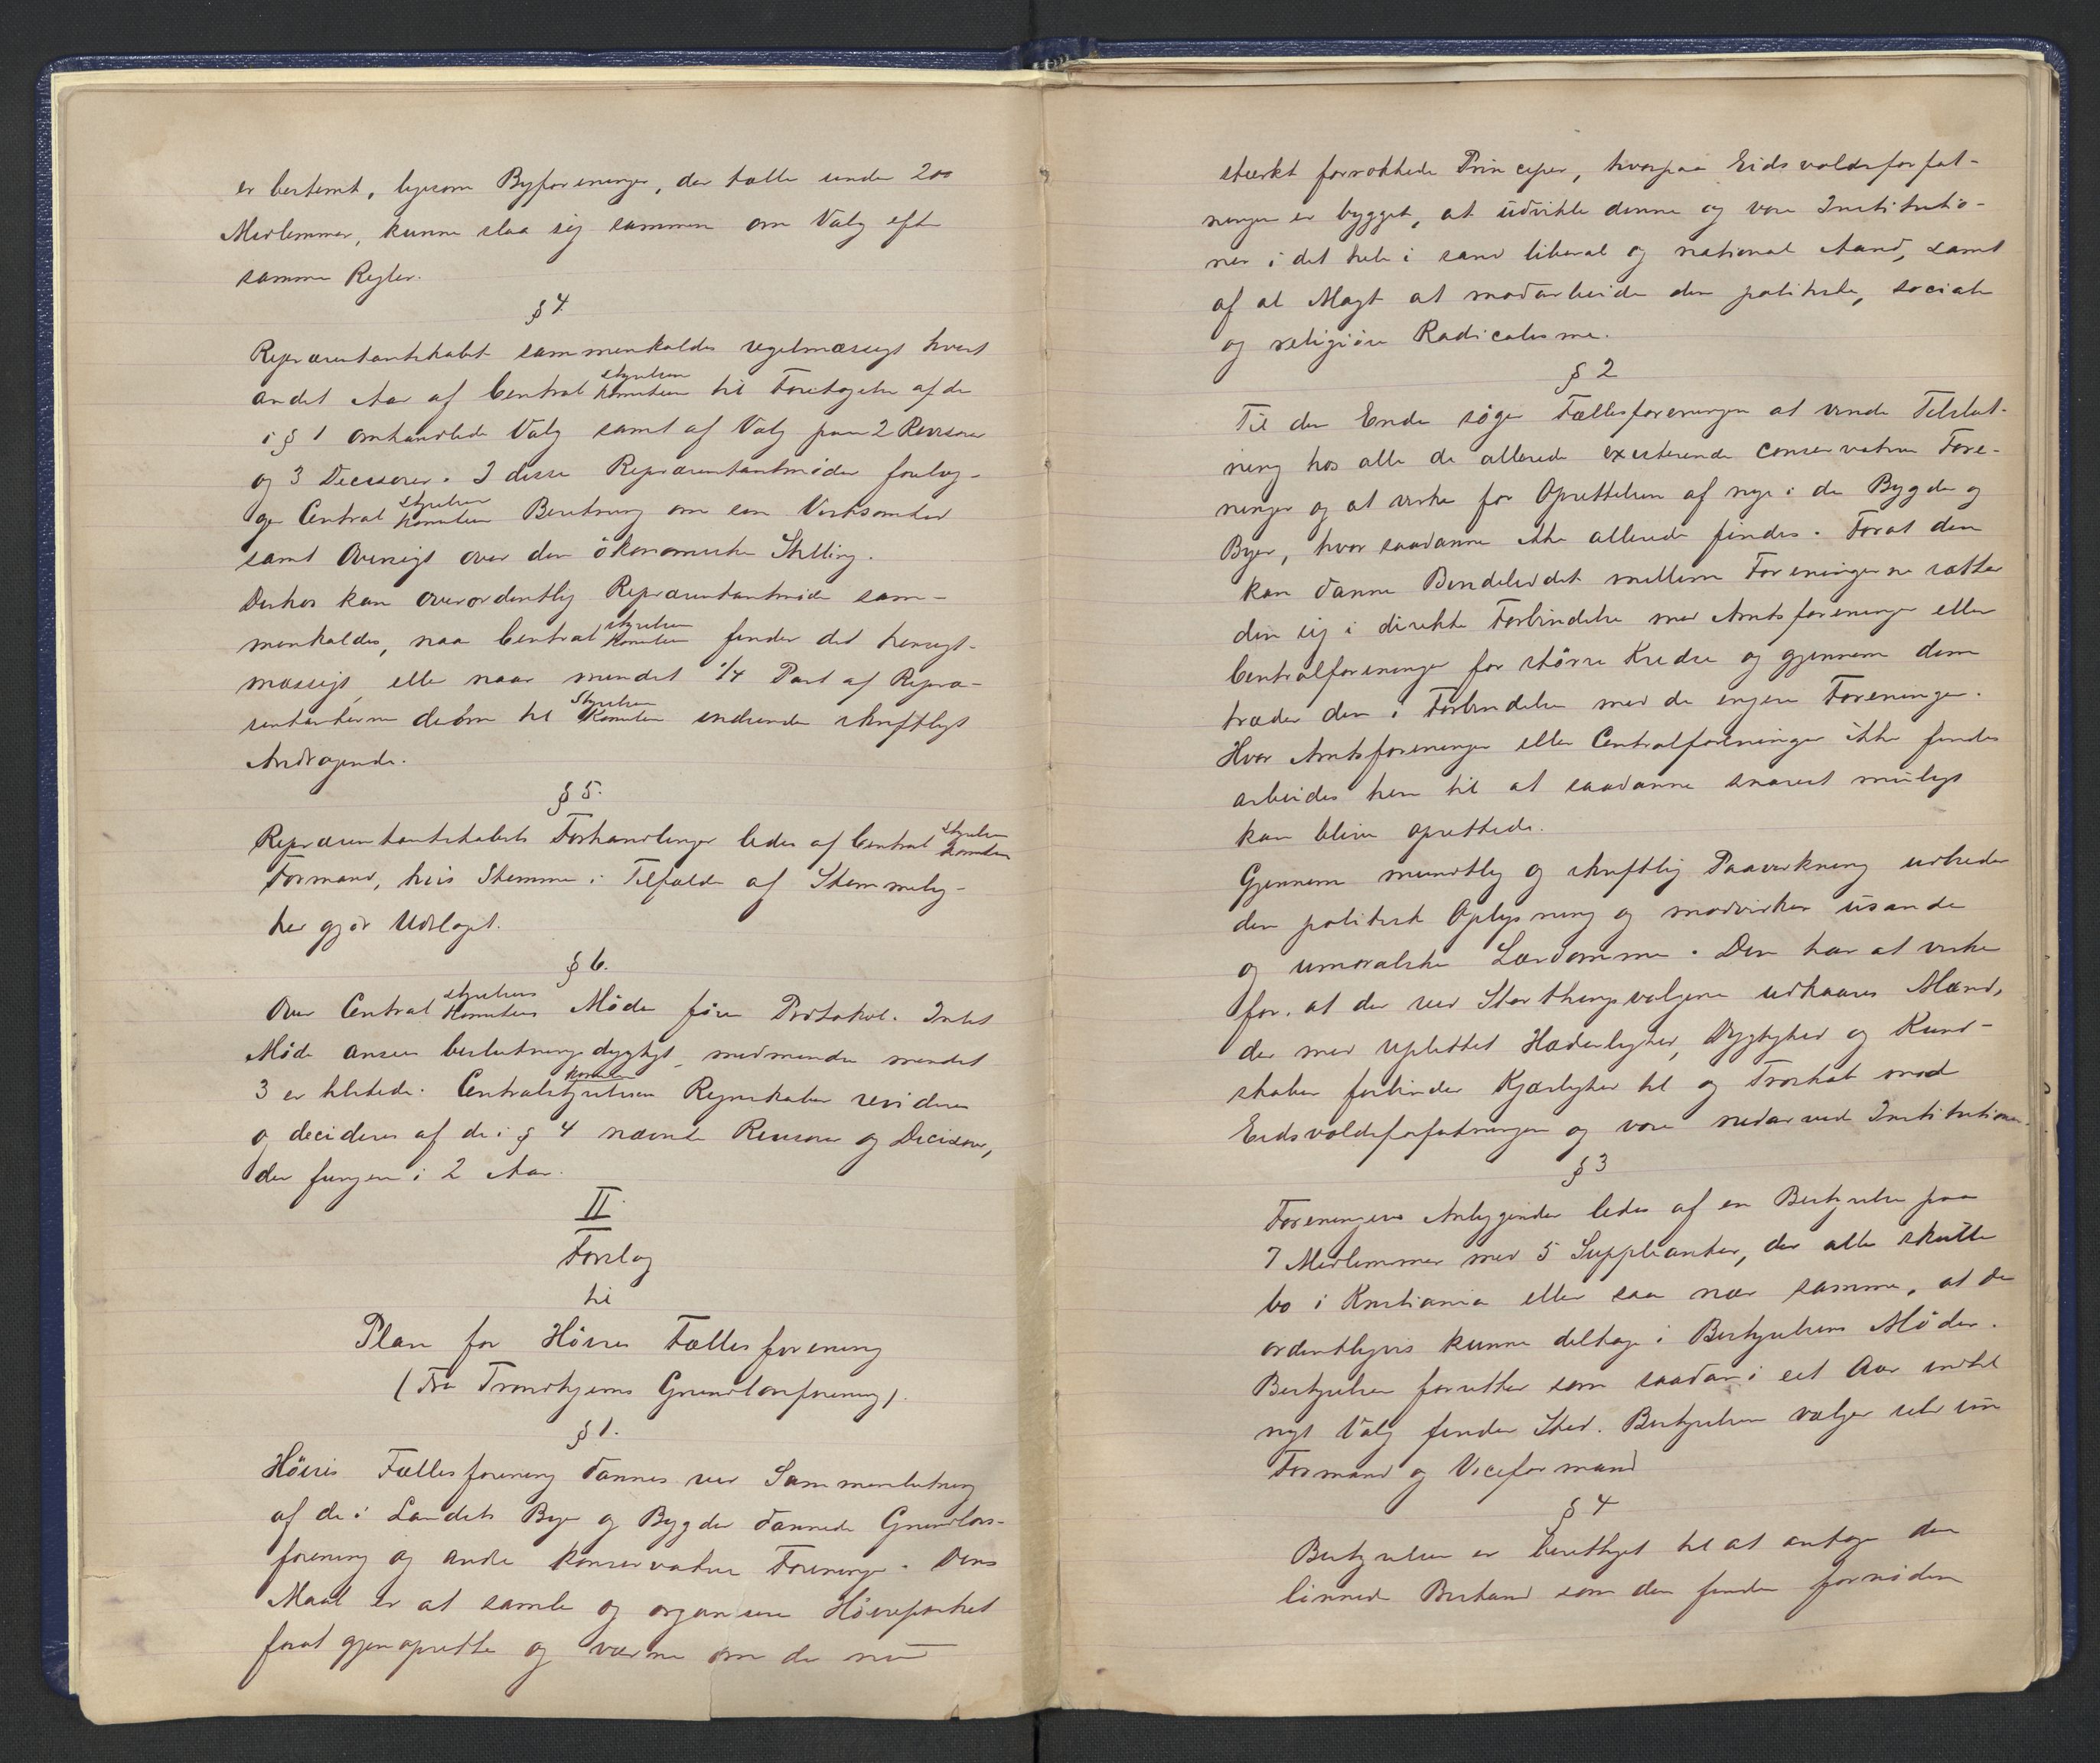 er bestemt, ligesom Byforeninger, der tælle under 200
Medlemmer, kunne slaa sig sammen om Valg efter
samme Regler.
§ 4.
Repræsentantskabet sammenkaldes regelmæssigt hvert
styrelsen
andet Aar af Central Komiteen til Foretagelse af de
i § 1 omhandlede Valg samt af Valg paa 2 Revisorer
og 3 Decisorer. I disse Repræsentantmøder forelæg-
styrelsen
ger Central Komiteen Beretning om sin Virksomhed
samt Oversigt over den økonomiske Stilling.
Derhos kan overordentlig Repræsentantmøde sam-
styrelsen
menkaldes, naar Central Komiteen finder det hensigt-
mæssigt, eller naar mindst 1/4 Part af Repræ-
Styrelsen
sentanterne derom til Komiteen indsender skriftligt
Andragende.
§ 5.
styrelsens
Repræsentantskabets Forhandlinger ledes af Central Komiteens
Formand, hvis Stemme i Tilfælde af Stemmelig-
hed gjør Udslaget.
§ 6.
styrelsens
Over Central Komiteens Møder føres Protokol. Intet
Møde ansees beslutningsdygtigt, medmindre mindst
Komiteens
3 er tilstede. Centralstyrelsens Regnskaber revideres
og decideres af de i § 4 nævnte Revisorer og Decisorer,
der fungere i 2 Aar.
II.
Forslag
til
Plan for Høires Fællesforening
(Fra Trondhjems Grundlovsforening).
§ 1.
Høires Fællesforening dannes ved Sammenslutning
af de i Landets Byer og Bygder dannede Grundlovs-
forening og andre konservative Foreninger. Dens
Maal er at samle og organisere Høirepartiet
forat gjenoprette og værne om de nu
stærkt forrokkede Principer, hvorpaa Eidsvoldsforfat-
ningen er bygget, at udvikle denne og vore Institutio-
ner i det hele i sand liberal og national Aand, samt
af al Magt at modarbeide den politiske, sociale
og religiøse Radicalisme.
§ 2
Til den Ende søger Fællesforeningen at vinde Tilslut-
ning hos alle de allerede existerende conservative Fore-
ninger og at virke for Oprettelsen af nye i de Bygder og
Byer, hvor saadanne ikke allerede findes. Forat den
kan danne Bindeleddet mellem Foreningerne sætter
den sig i direkte Forbindelse med Amtsforeninger eller
Centralforeninger for større Kredse og gjennem dem
træder den i Forbindelse med de engere Foreninger.
Hvor Amtsforeninger eller Centralforeninger ikke findes
arbeides hen til at saadanne snarest muligt
kan blive oprettede.
Gjennem mundtlig og skriftlig Paavirkning udbreder
den politisk Oplysning og modvirker usande
og umoralske Lærdomme. Den har at virke
for, at der ved Storthingsvalgene udkaares Mænd,
der med uplettet Hæderlighed, Dygtighed og Kund-
skaber forbinder Kjærlighed til og Troskab mod
Eidsvoldsforfatningen og vore nedarvede Institutioner.
§ 3
Foreningens Anliggender ledes af en Bestyrelse paa
7 Medlemmer med 5 Supplianter, der alle skulle
bo i Kristiania eller saa nær samme, at de
ordentligvis kunne deltage i Bestyrelsens Møder.
Bestyrelsen forretter som saadan i eet Aar indtil
nyt Valg finder Sted. Bestyrelsen vælger selv sin
Formand og Viceformand
§ 4
Bestyrelsen er berettiget til at antage den
lønnede Bistand som den finder fornøden